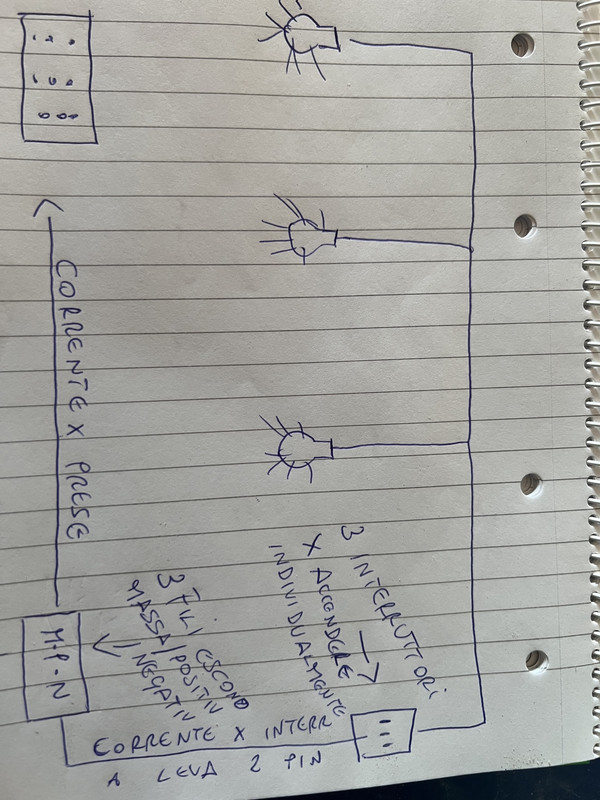 CORRENTE X PRESE
M-P-N
3 FILI ESCONO
MASSA/POSITIV
/NEGATIV
3 INTERRUTTORI
X ACCENDERE
INDIVIDUALMENTE
CORRENTE X INTERR
A LEVA 2 PIN